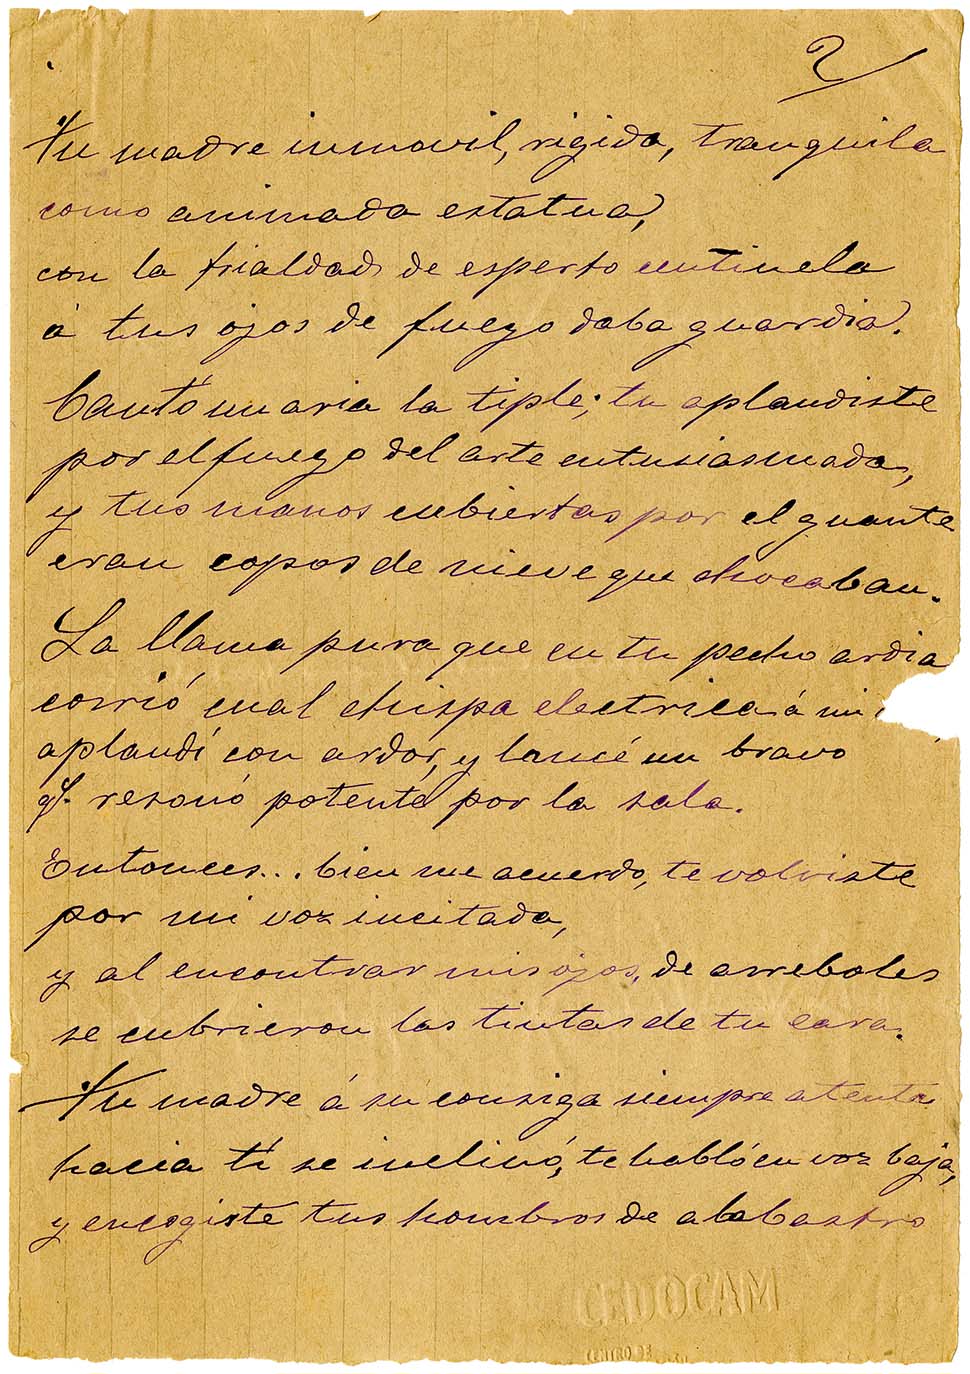 2/
Tu madre inmovil, rigida, tranquila
como animada estatua,
con la frialdad de esperto centinela
á tus ojos de fuego daba guardia.
Cantó un aria la tiple; tu aplaudiste
por el fuego del arte entusiasmada,
y tus manos cubiertas por el guante
eran copos de nieve que chocaban.
La llama pura que en tu pecho ardia
corrió cual chispa electrica á mi;
aplaudí con ardor, y lancé un bravo
q.e resonó potente por la sala.
Entonces... bien me acuerdo, te volviste
por mi voz incitada,
y al encontrar mis ojos, de arreboles
se cubrieron las tintas de tu cara.
Tu madre á su consiga siempre atenta
hacia tí se inclinó, te habló en voz baja,
y encogiste tus hombros de alabastro
CEDOCAM
CENTRO DE